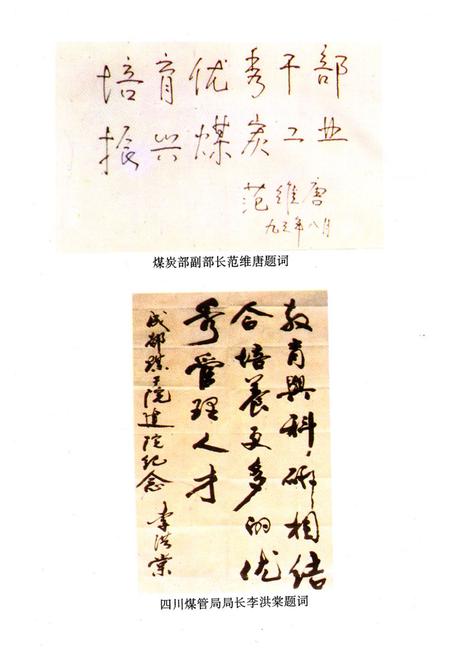 培育优秀干部
振兴煤炭工业
范维唐
九五年八月
煤炭部副部长范维唐题词
教育與科研相结
合培養更多的优
秀管理人才
成都煤干院建院纪念
李洪棠
四川煤管局局长李洪棠题词